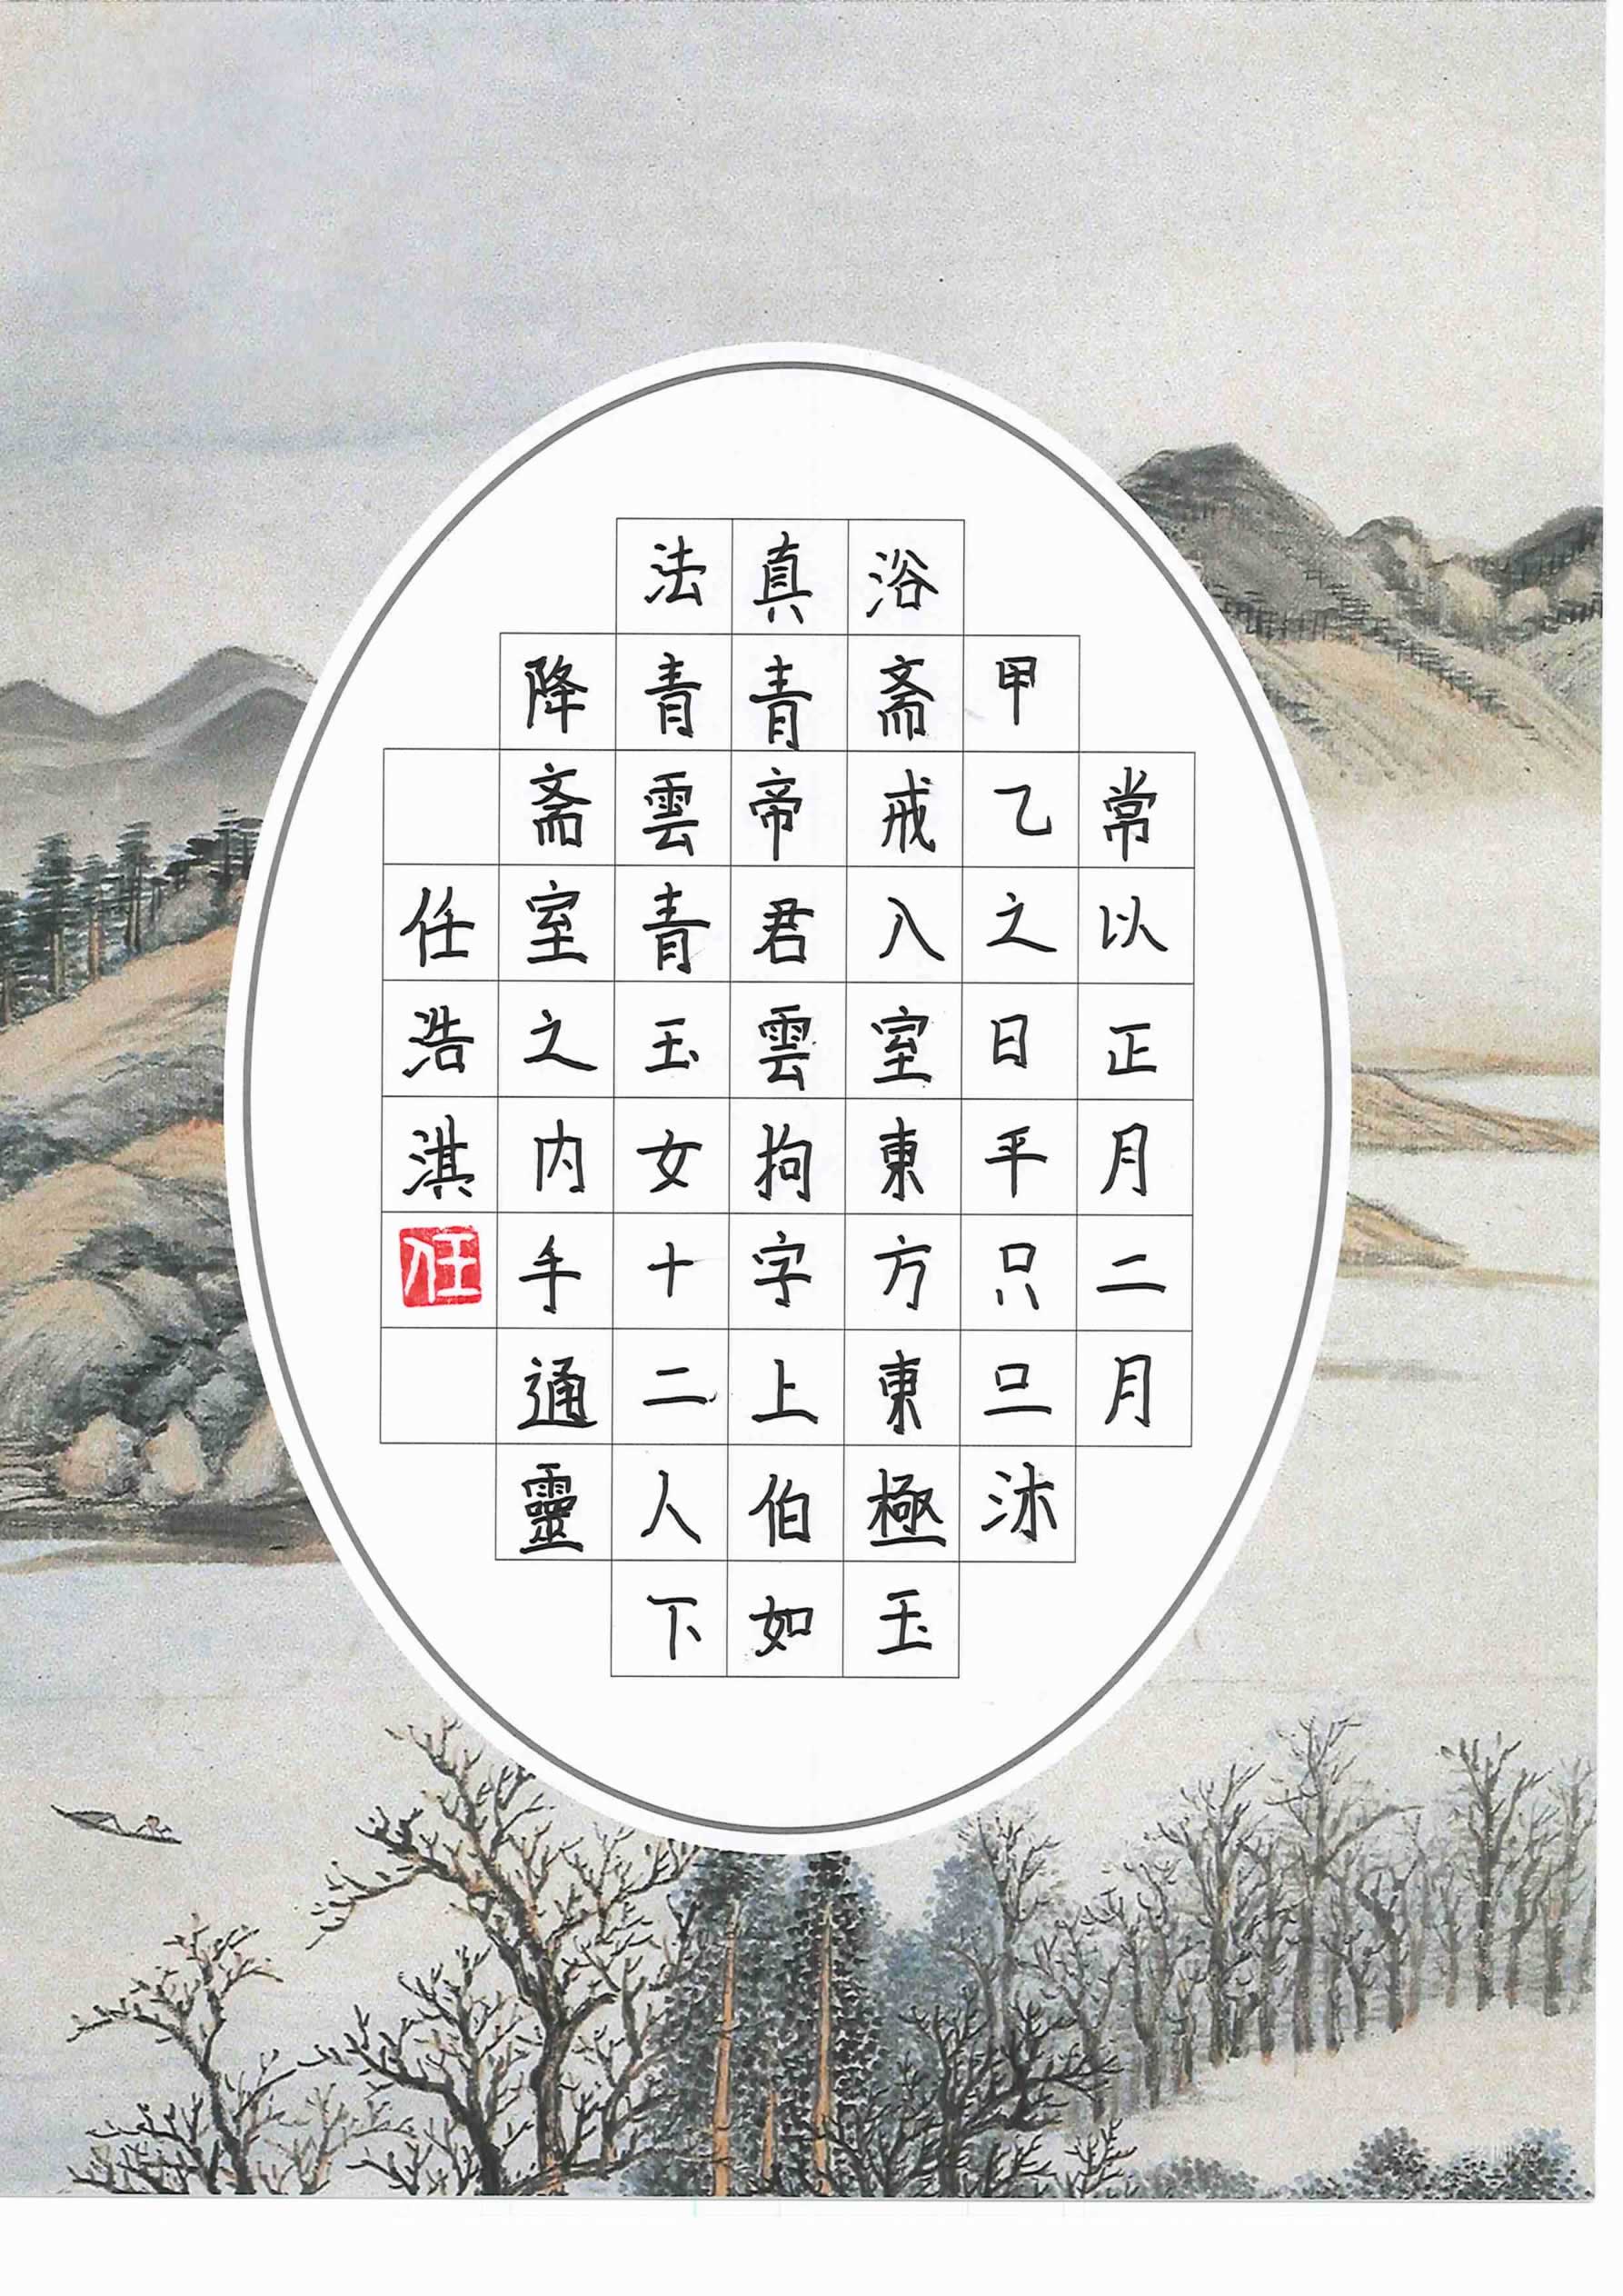 常以正月二月
甲乙之日平只旦沐
浴斋戒入室東方東極玉
真青帝君雲拘字上伯如
法青雲青玉女十二人下
降斋室之内手通靈
任浩淇
任